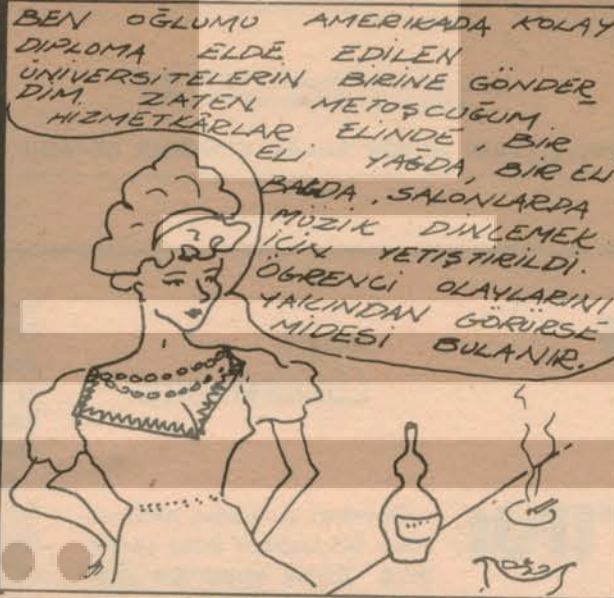 BEN OĞLUMU AMERIKADA KOLAY
DIPLOMA ELDE EDILEN
ÜNİVERSİTELERİN BİRİNE GÖNDER
DİM. ZATEN METOŞCUĞUM
HIZMETKÂRLAR ELINDE, BIR
ELI YAĞDA, BIR ELI
BAĞDA, SALONLARDA
MÜZIK DINLEMEK
IÇIN YETIŞTIRILDI.
ÖĞRENCI OLAYLARINI
YAKINDAN GÖRÜRSE
MIDESI BULANIR.